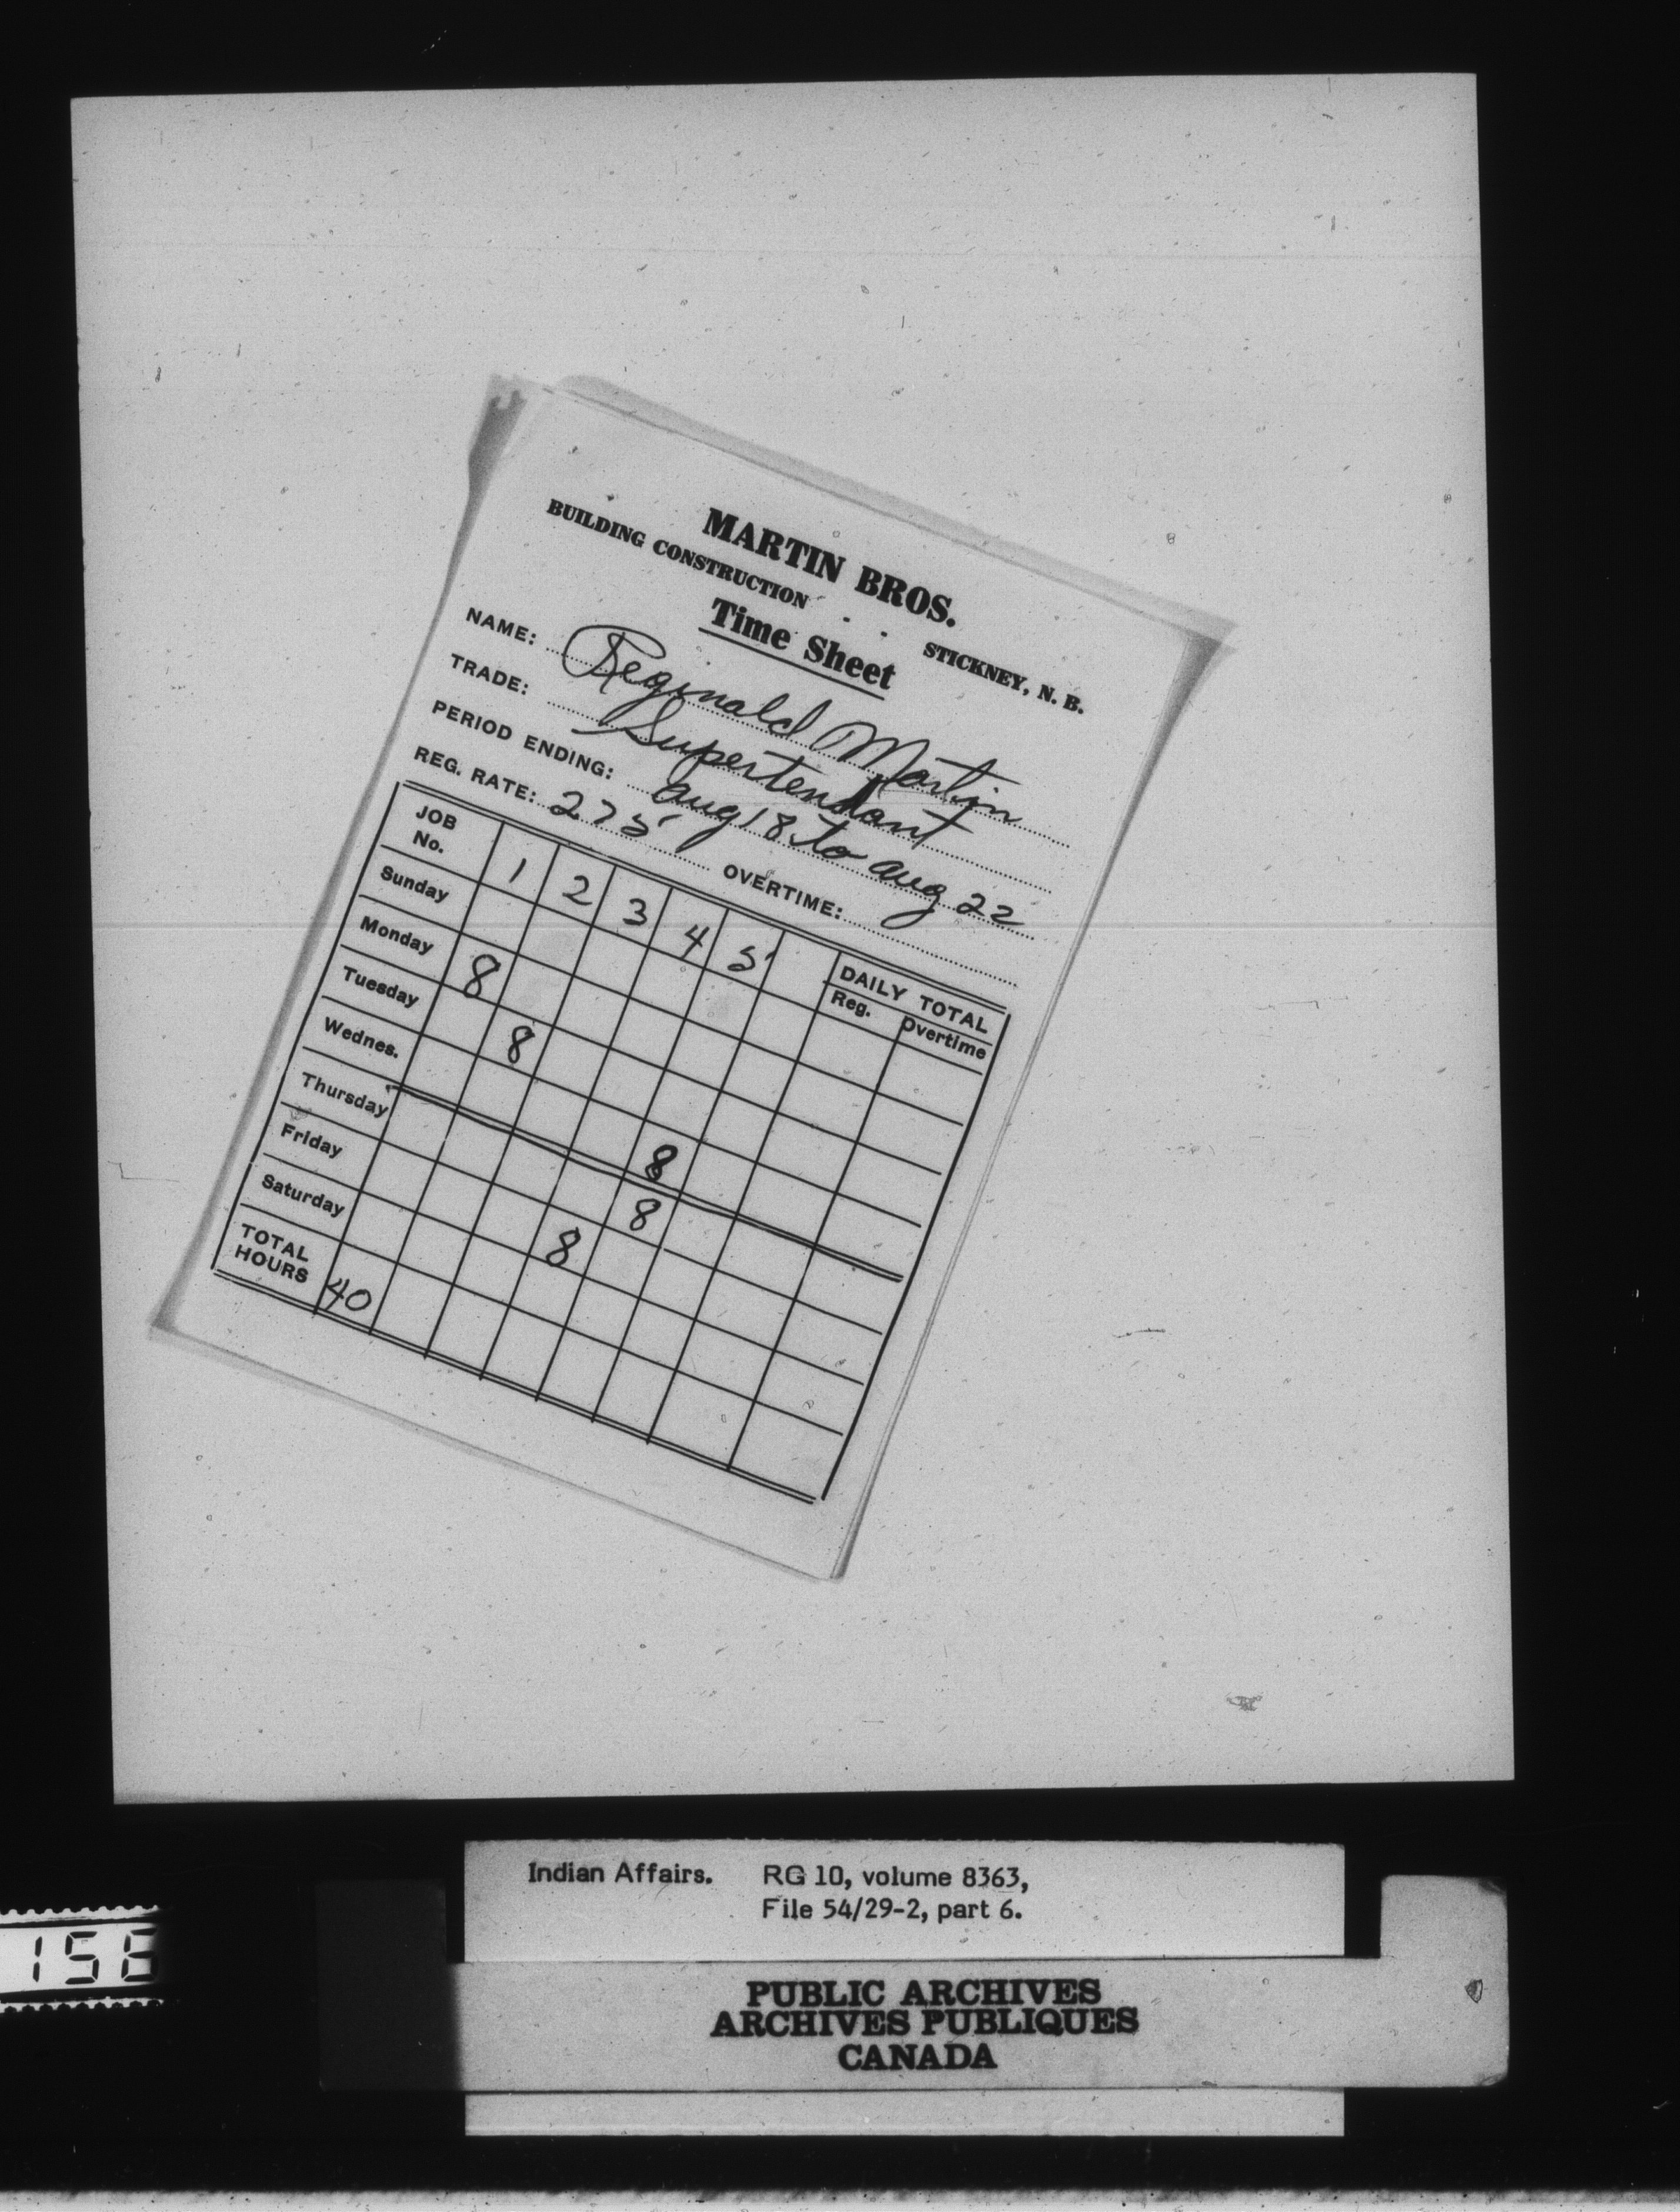 MARTIN BROS.
BUILDING CONSTRUCTION . . STICKNEY, N. B.
Time Sheet
NAME: Reginald Martin
TRADE: Supertendant
PERIOD ENDING: Aug 18 to Aug 22
REG. RATE: 275 OVERTIME:
JOB No. 1 2 3 4 5 DAILY TOTAL
Reg. Overtime
Sunday
Monday 8
Tuesday 8
Wednes. 8
Thursday 8
Friday 8
Saturday
TOTAL HOURS 40
Indian Affairs. RG 10, volume 8363,
File 54/29-2, part 6.
PUBLIC ARCHIVES
ARCHIVES PUBLIQUES
CANADA